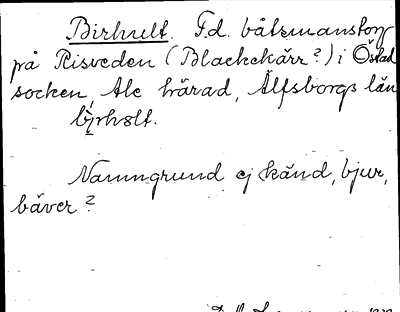 Birhult. F.d. båtsmanstorp
på Risveden (Blackekärr?) i Östad
socken, Ale härad, Älfsborgs län
by̨rhꝏlt.
Namngrund ej känd, bjur,
bäver?